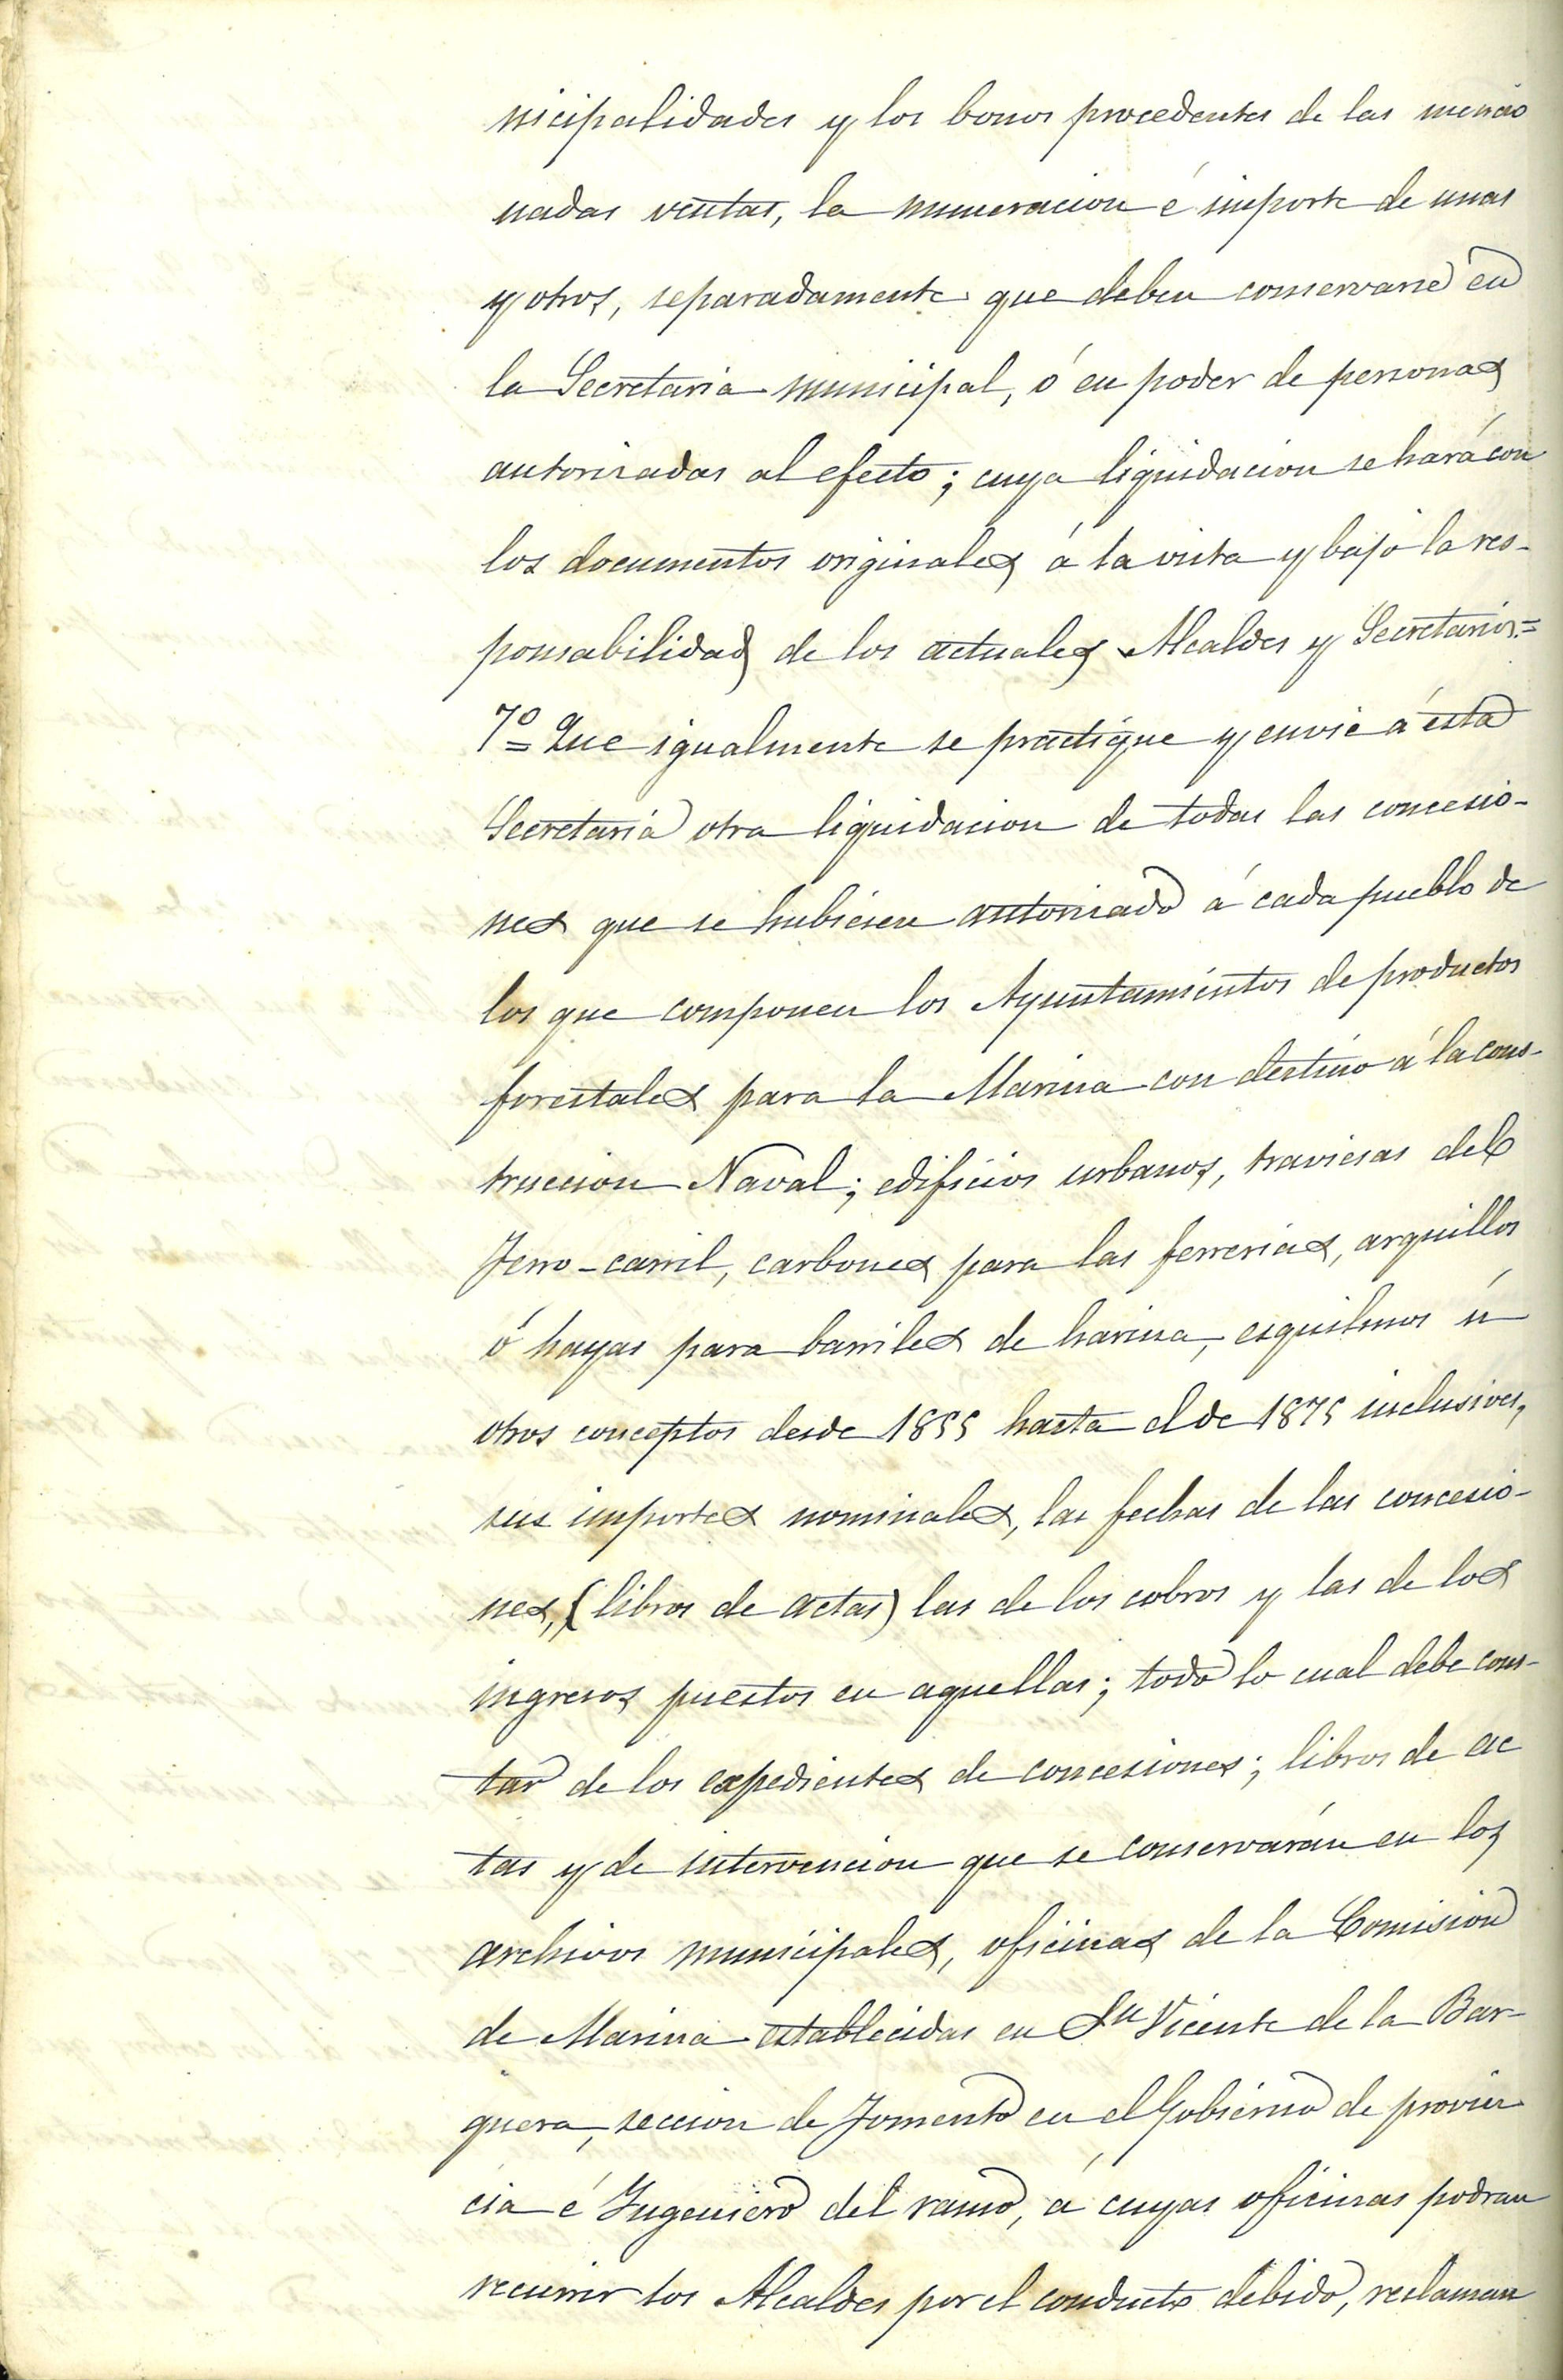 nicipalidades y los bonos procedentes de las mencio
nadas ventas, la numeracion é importe de unas
y otros, separadamente que deben conservarse en
la Secretaria municipal, ó en poder de personas
autorizadas al efecto; cuya liquidacion se hará con
los documentos originales á la vista y bajo la res-
ponsabilidad de los actuales Alcaldes y Secretarios.=
7º Que igualmente se practique y envie á esta
Secretaria otra liquidacion de todas las concesio-
nes que se hubiesen autorizado á cada pueblo de
los que componen los Ayuntamientos de productos
forestales para la Marina con destino á la cons-
truccion Naval; edificios urbanos, traviesas del
Ferro-carril, carbones para las ferrerias, arquillos
ó hayas para barriles de harina, esquilmos ú
otros conceptos desde 1855 hasta el de 1875 inclusives,
sus importes nominales, las fechas de las concesio-
nes, (libros de actas) las de los cobros y las de los
ingresos puestos en aquellas; todo lo cual debe cons-
tar de los expedientes de concesiones; libros de ac
tas y de intervencion que se conservarán en los
archivos municipales, oficinas de la Comision
de Marina establecidas en Sn Vicente de la Bar-
quera, seccion de Fomento en el Gobierno de provin
cia é Ingeniero del ramo, á cuyas oficinas podran
recurrir los Alcaldes por el conducto debido, reclaman